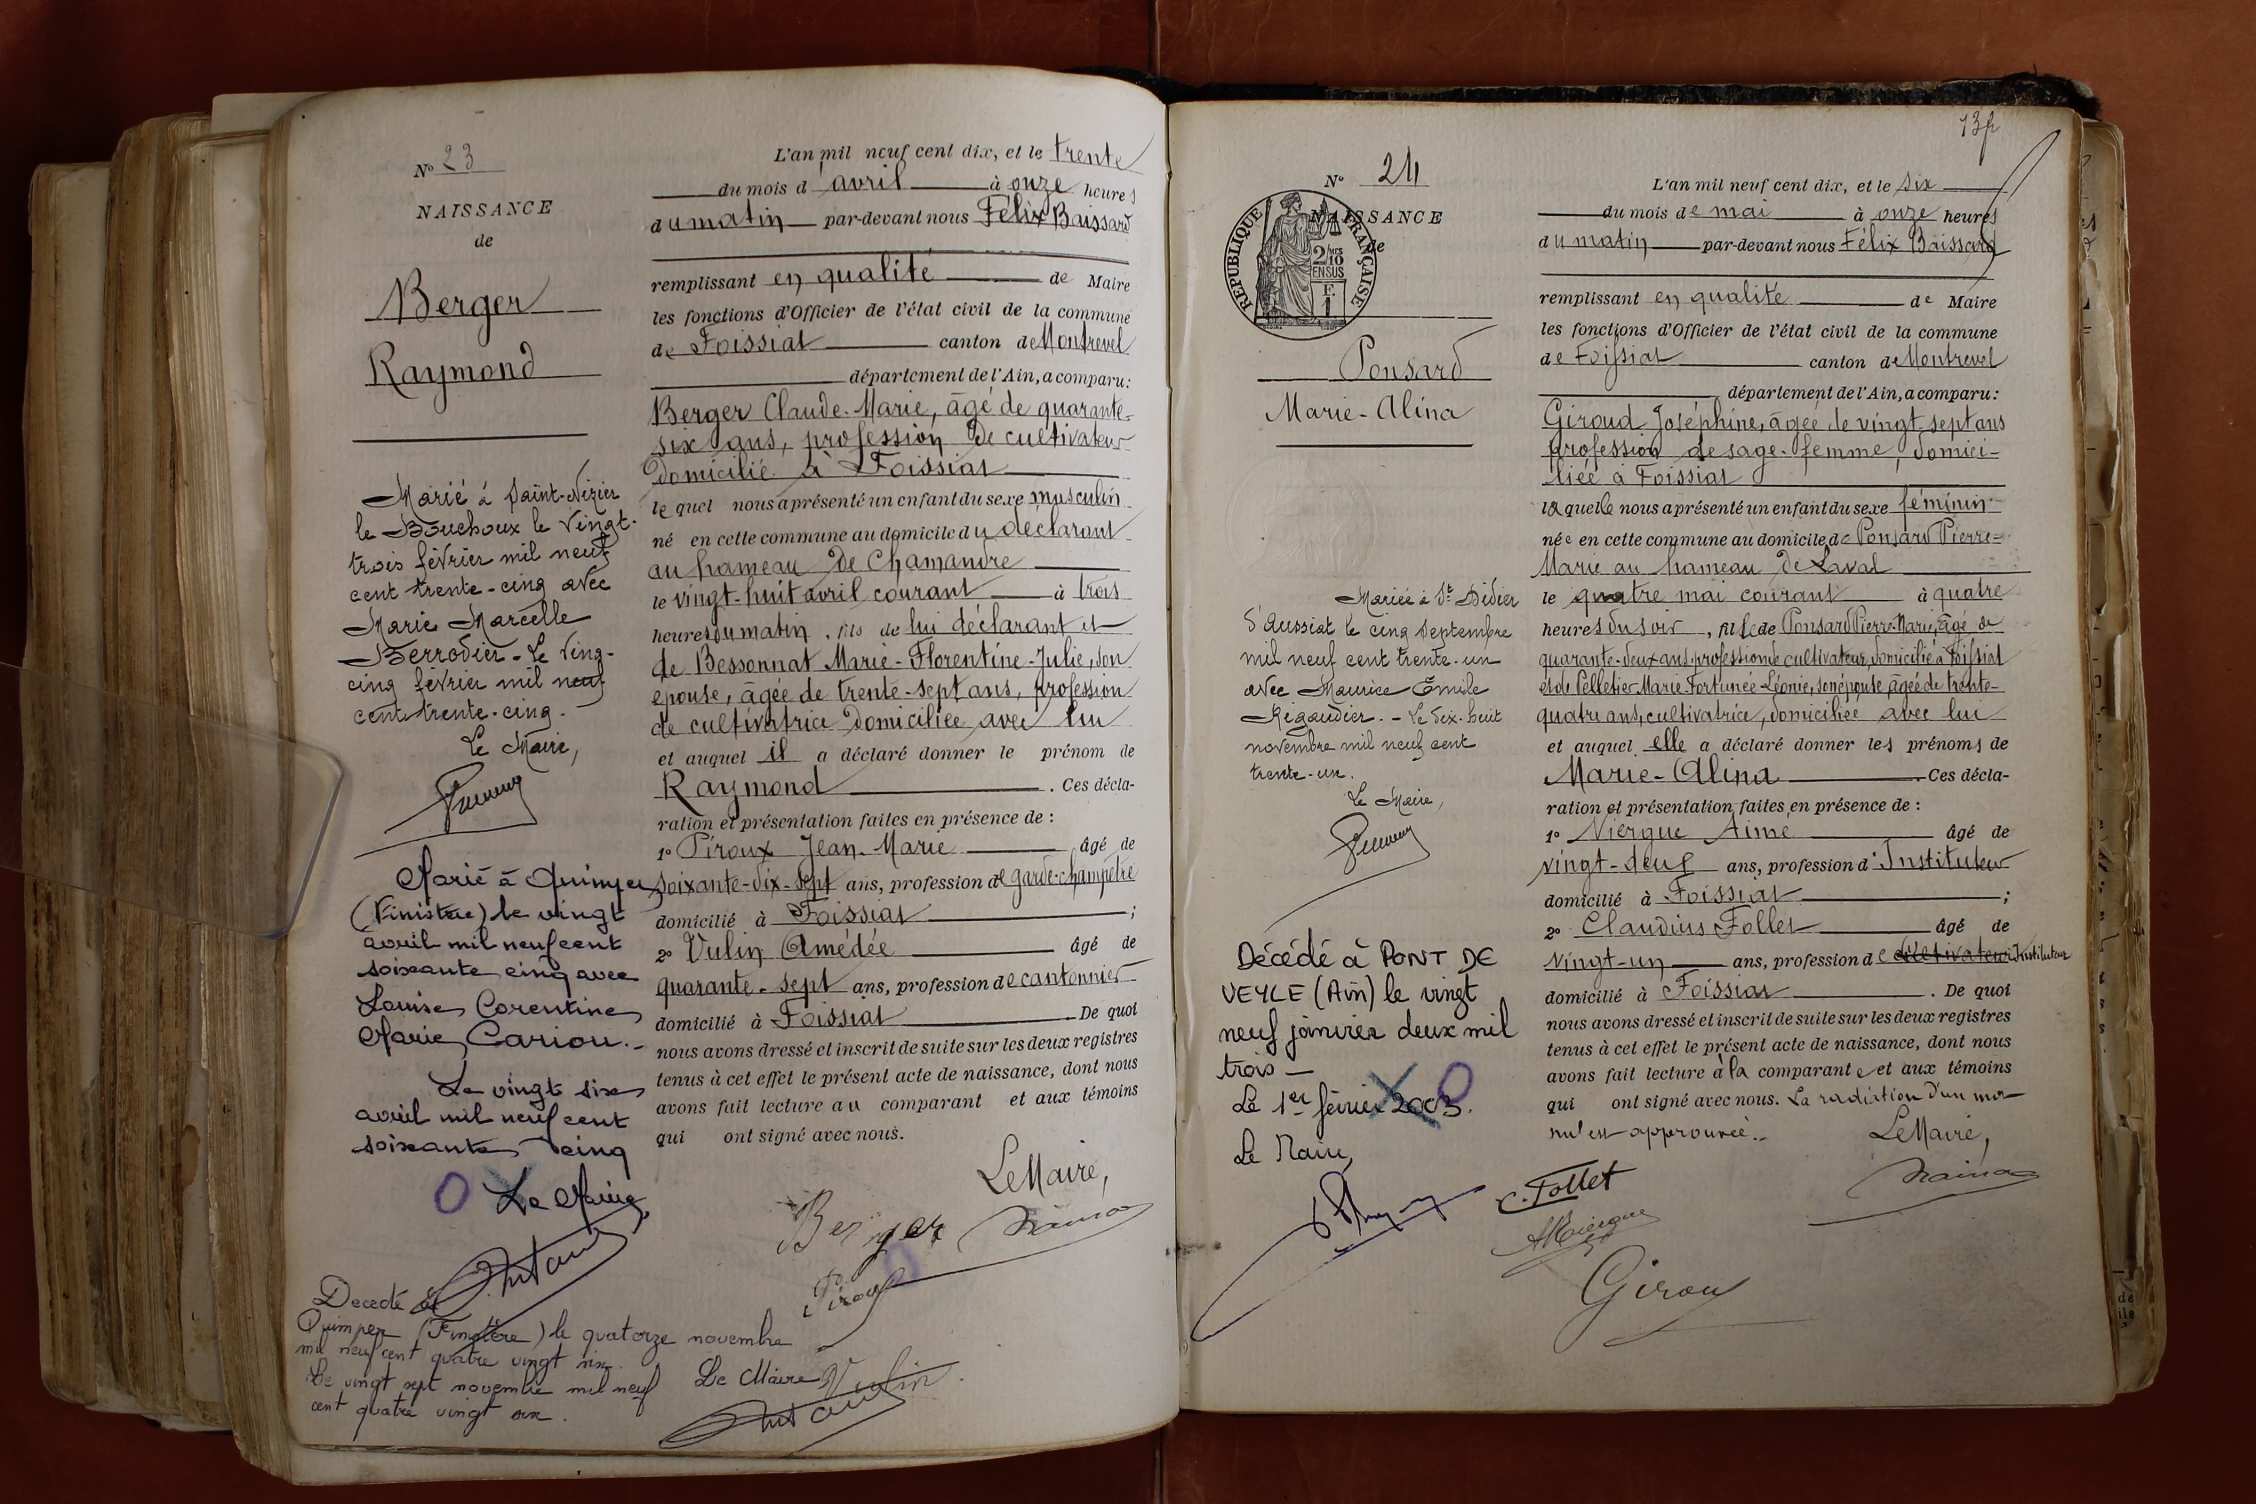 N° 23
NAISSANCE
de
Berger
Raymond
Marié à Saint-Nizier
le Bouchoux le vingt-
trois février mil neuf
cent trente-cinq avec
Marie Marcelle
Berrodier - Le ving-
cinq février mil neuf
cent trente-cinq.
Le Maire,
Marié à Quimper
(Finistère) le vingt
avril mil neuf cent
soixante cinq avec
Louise Corentine
Marie Cariou.-
Le vingt six
avril mil neuf cent
soixante cinq
Le Maire
Decedé à
Quimper (Finistère) le quatorze novembre
mil neuf cent quatre vingt six.
Le vingt sept novembre mil neuf
cent quatre vingt six.
Le Maire
L'an mil neuf cent dix, et le trente
du mois d'avril à onze heures
du matin par-devant nous Félix Baissard
remplissant en qualité de Maire
les fonctions d'Officier de l'état civil de la commune
de Foissiat canton de Montrevel
département de l'Ain, a comparu:
Berger Claude-Marie, âgé de quarante-
six ans, profession de cultivateur
domicilié à Foissiat
lequel nous a présenté un enfant du sexe masculin
né en cette commune au domicile du déclarant
au hameau de Chamandre
le vingt-huit avril courant à trois
heures du matin, fils de lui déclarant et
de Bessonnat Marie-Florentine-Julie, son
epouse, âgée de trente-sept ans, profession
de cultivatrice domiciliée avec lui
et auquel il a déclaré donner le prénom de
Raymond. Ces décla-
ration et présentation faites en présence de :
1° Piroux Jean-Marie âgé de
soixante-dix-sept ans, profession de garde-champêtre
domicilié à Foissiat ;
2° Vulin Amédée âgé de
quarante-sept ans, profession de cantonnier
domicilié à Foissiat. De quoi
nous avons dressé et inscrit de suite sur les deux registres
tenus à cet effet le présent acte de naissance, dont nous
avons fait lecture au comparant et aux témoins
qui ont signé avec nous.
Le Maire,
Berger
Piroux
Vulin
13
N° 24
NAISSANCE
de
REPUBLIQUE FRANÇAISE
2/10
EN SUS
Ponsard
Marie-Alina
Mariée à St Didier
d'Aussiat le cinq septembre
mil neuf cent trente-un
avec Maurice Emile
Rigaudier. - Le dix-huit
novembre mil neuf cent
trente-un.
Le Maire,
Décédé à PONT DE
VEYLE (Ain) le vingt
neuf janvier deux mil
trois -
Le 1er février 2003.
Le Maire,
L'an mil neuf cent dix, et le six
du mois de mai à onze heures
du matin par-devant nous Félix Baissard
remplissant en qualité de Maire
les fonctions d'Officier de l'état civil de la commune
de Foissiat canton de Montrevel
département de l'Ain, a comparu:
Giroud Joséphine, âgée de vingt-sept ans
profession de sage-femme, domici-
liée à Foissiat
laquelle nous a présenté un enfant du sexe féminin
née en cette commune au domicile de Ponsard Pierre-
Marie au hameau de Laval
le quatre mai courant à quatre
heures du soir, fille de Ponsard Pierre-Marie, âgé de
quarante-deux ans, profession de cultivateur, domicilié à Foissiat
et de Pelletier Marie Fortunée-Léonie, son épouse, âgée de trente-
quatre ans, cultivatrice, domiciliée avec lui
et auquel elle a déclaré donner les prénoms de
Marie-Alina. Ces décla-
ration et présentation faites en présence de :
1° Niergue Aimé âgé de
vingt-deux ans, profession d'Instituteur
domicilié à Foissiat ;
2° Claudius Follet âgé de
vingt-un ans, profession de cultivateur Instituteur
domicilié à Foissiat. De quoi
nous avons dressé et inscrit de suite sur les deux registres
tenus à cet effet le présent acte de naissance, dont nous
avons fait lecture à la comparante et aux témoins
qui ont signé avec nous. La radiation d'un mot
nul est approuvée.-
Le Maire,
C. Follet
Girou